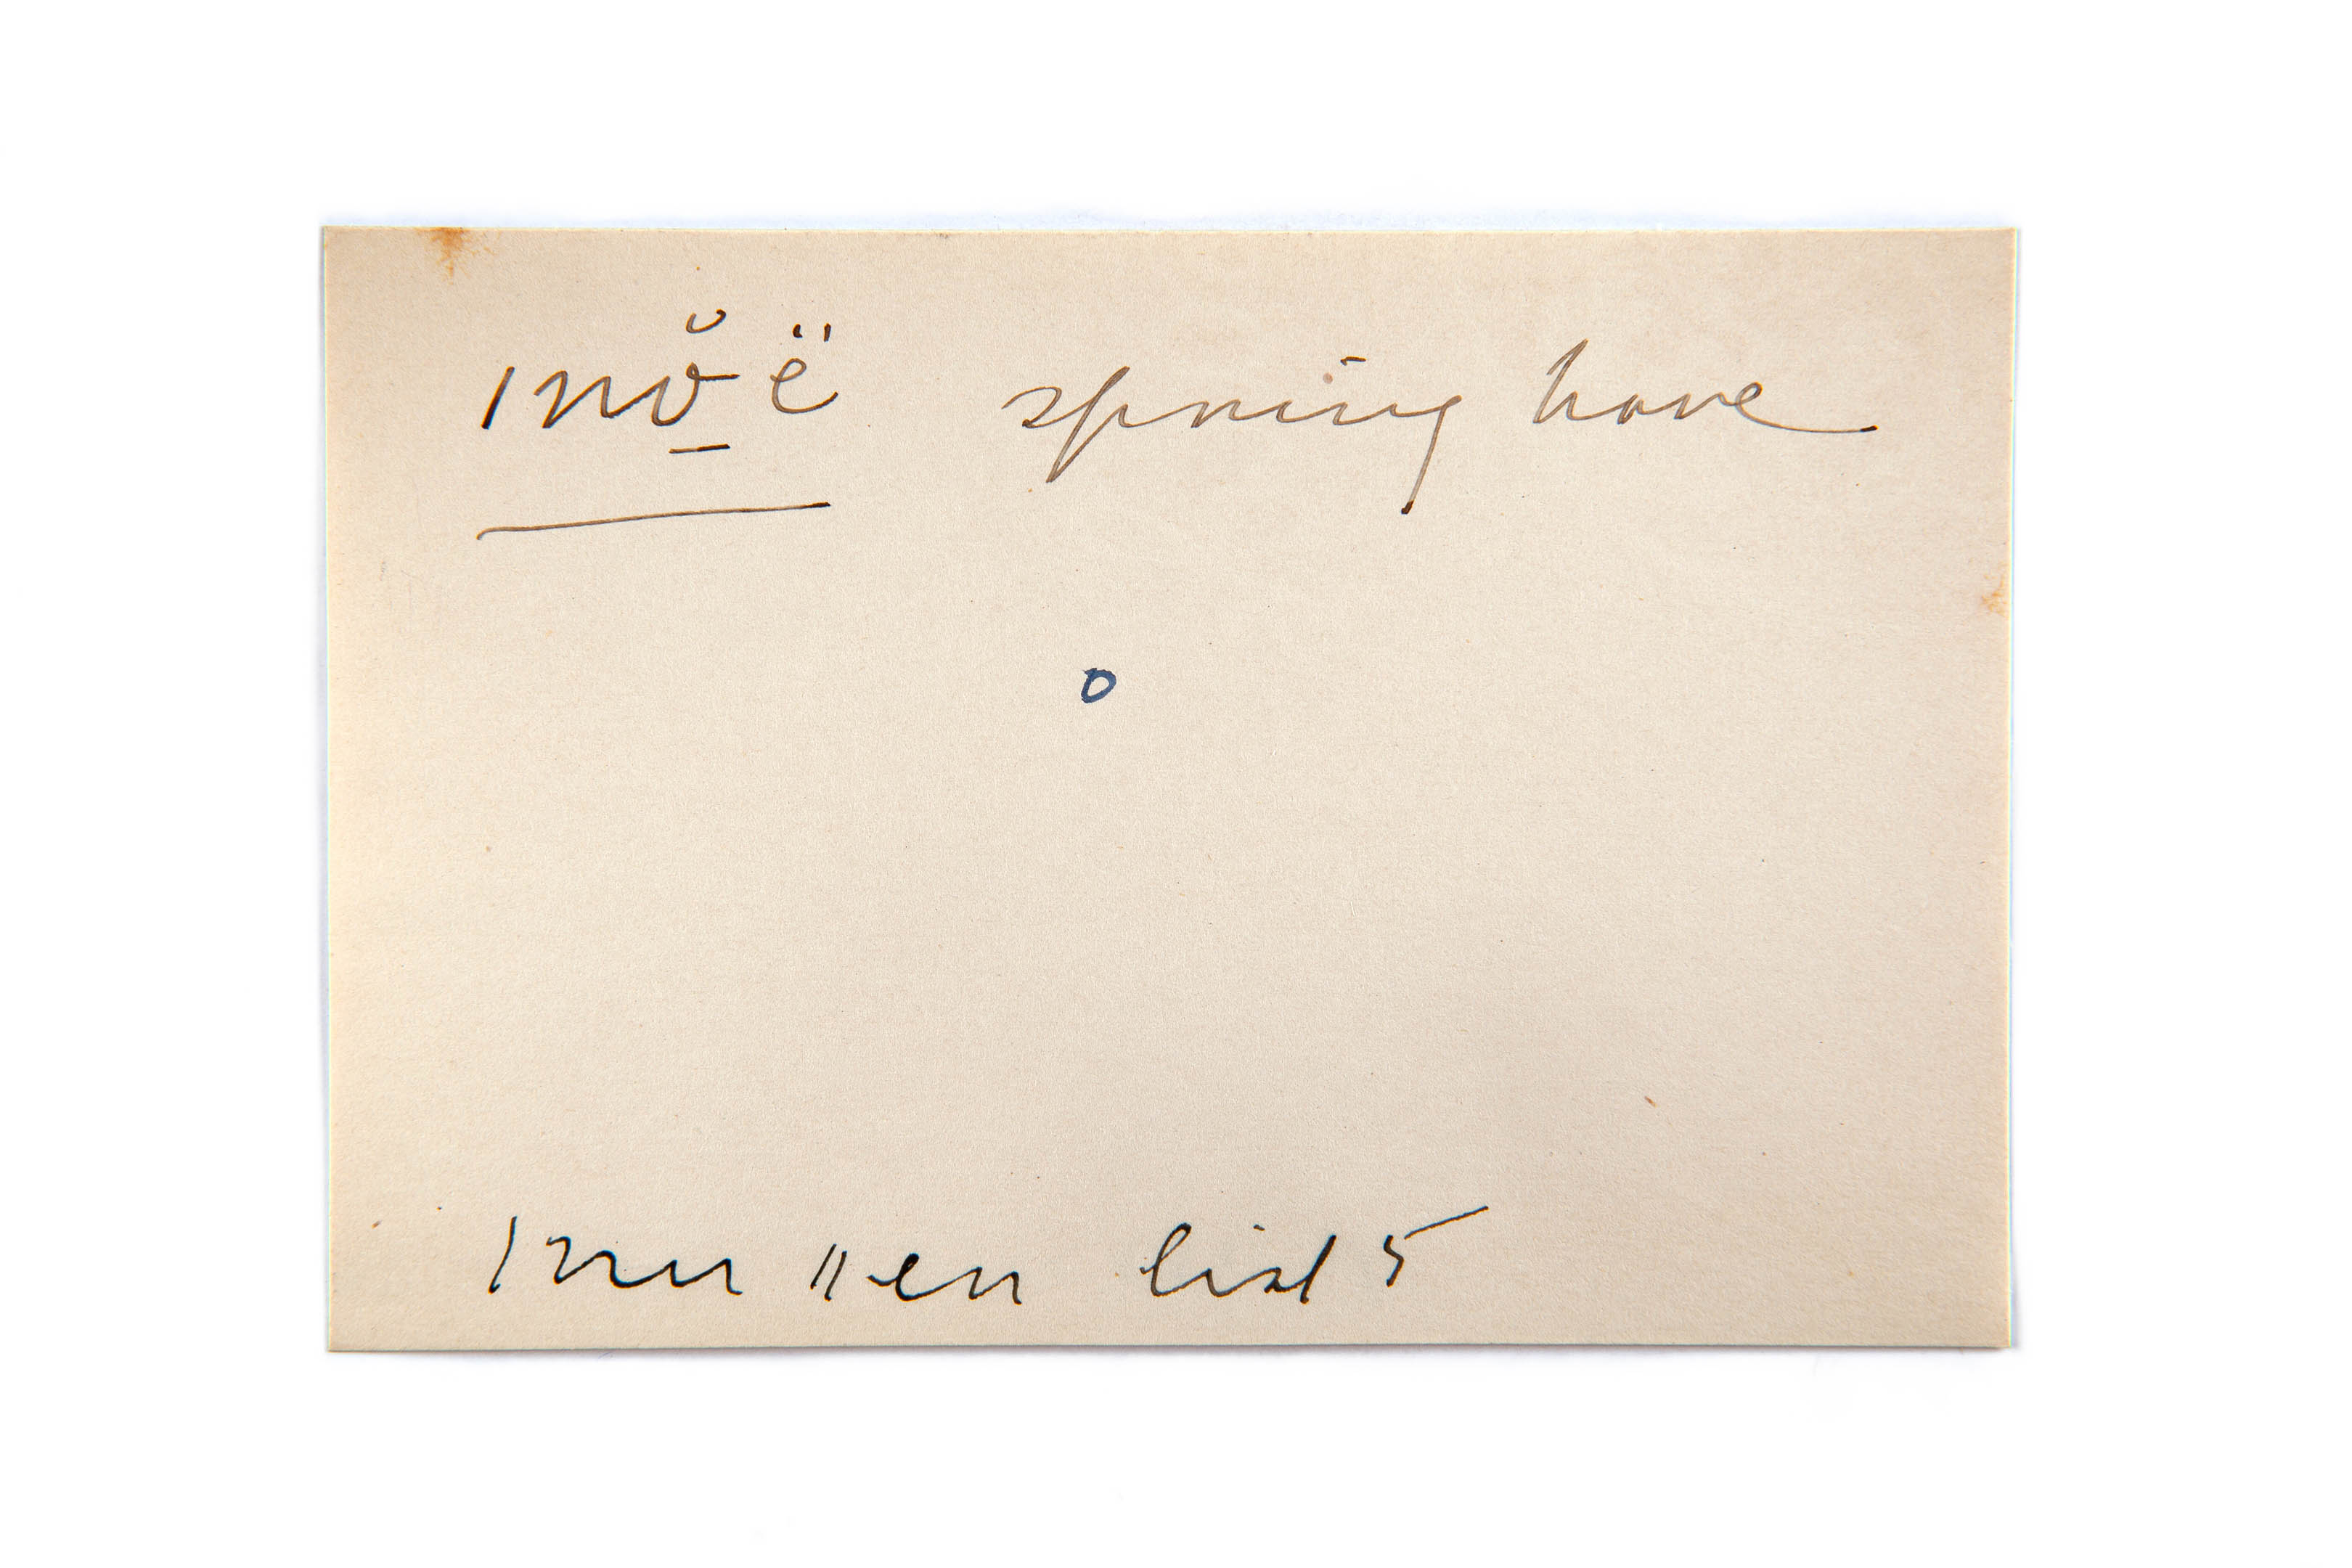 /nŏ̱ë spring hare
o
/nu //en list 5